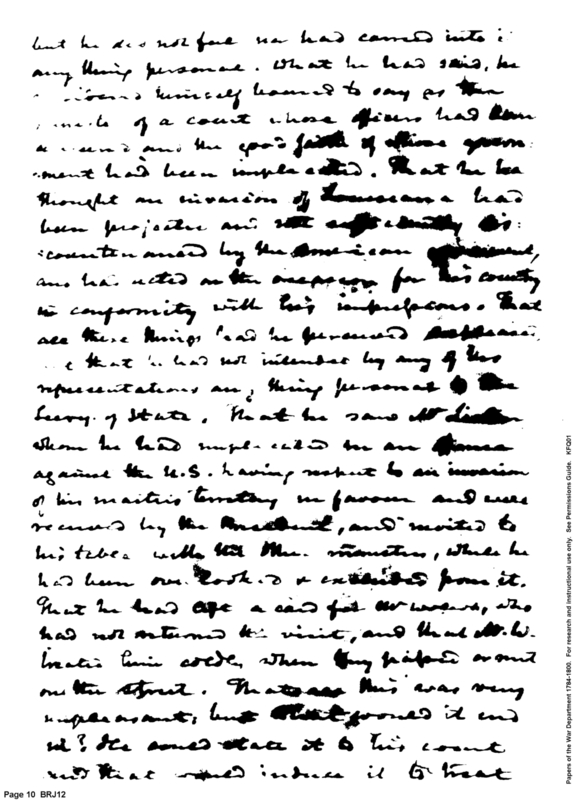 but he does not feel nor had carried into i
any thing personal. What he had said, he
himself bound to say as the
of a court whose officers had been
and the good faith of whose govern
ment had been implicated. That he had
thought an invasion of Louisiana had
been projected and not sufficiently dis:
:countenanced by the American government,
and had acted on the occasion for his country
in conformity with his impressions. That
all these things had he perceived
that he had not intended by any of his
representations any thing personal to the
Secry. of State. That he saw Mr Liston
whom he had implicated in an offence
against the U.S. having respect to an invasion
of his masters territory in favour and even
received by the President, and invited to
his table with the other ministers, while he
had been over looked & excluded from it.
That he had left a card for Mr Wolcott, who
had not returned the visit, and that Mr. W.
treated him coldly when they passed or met
on the street. That all this was very
unpleasant; but what would it end
in? He could state it to his court
and that would induce it to treat
Page 10 BRJ12
Papers of the War Department 1784-1800. For research and instructional use only. See Permissions Guide. KFQ01